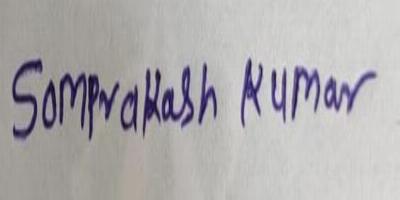 Somprakash Kumar